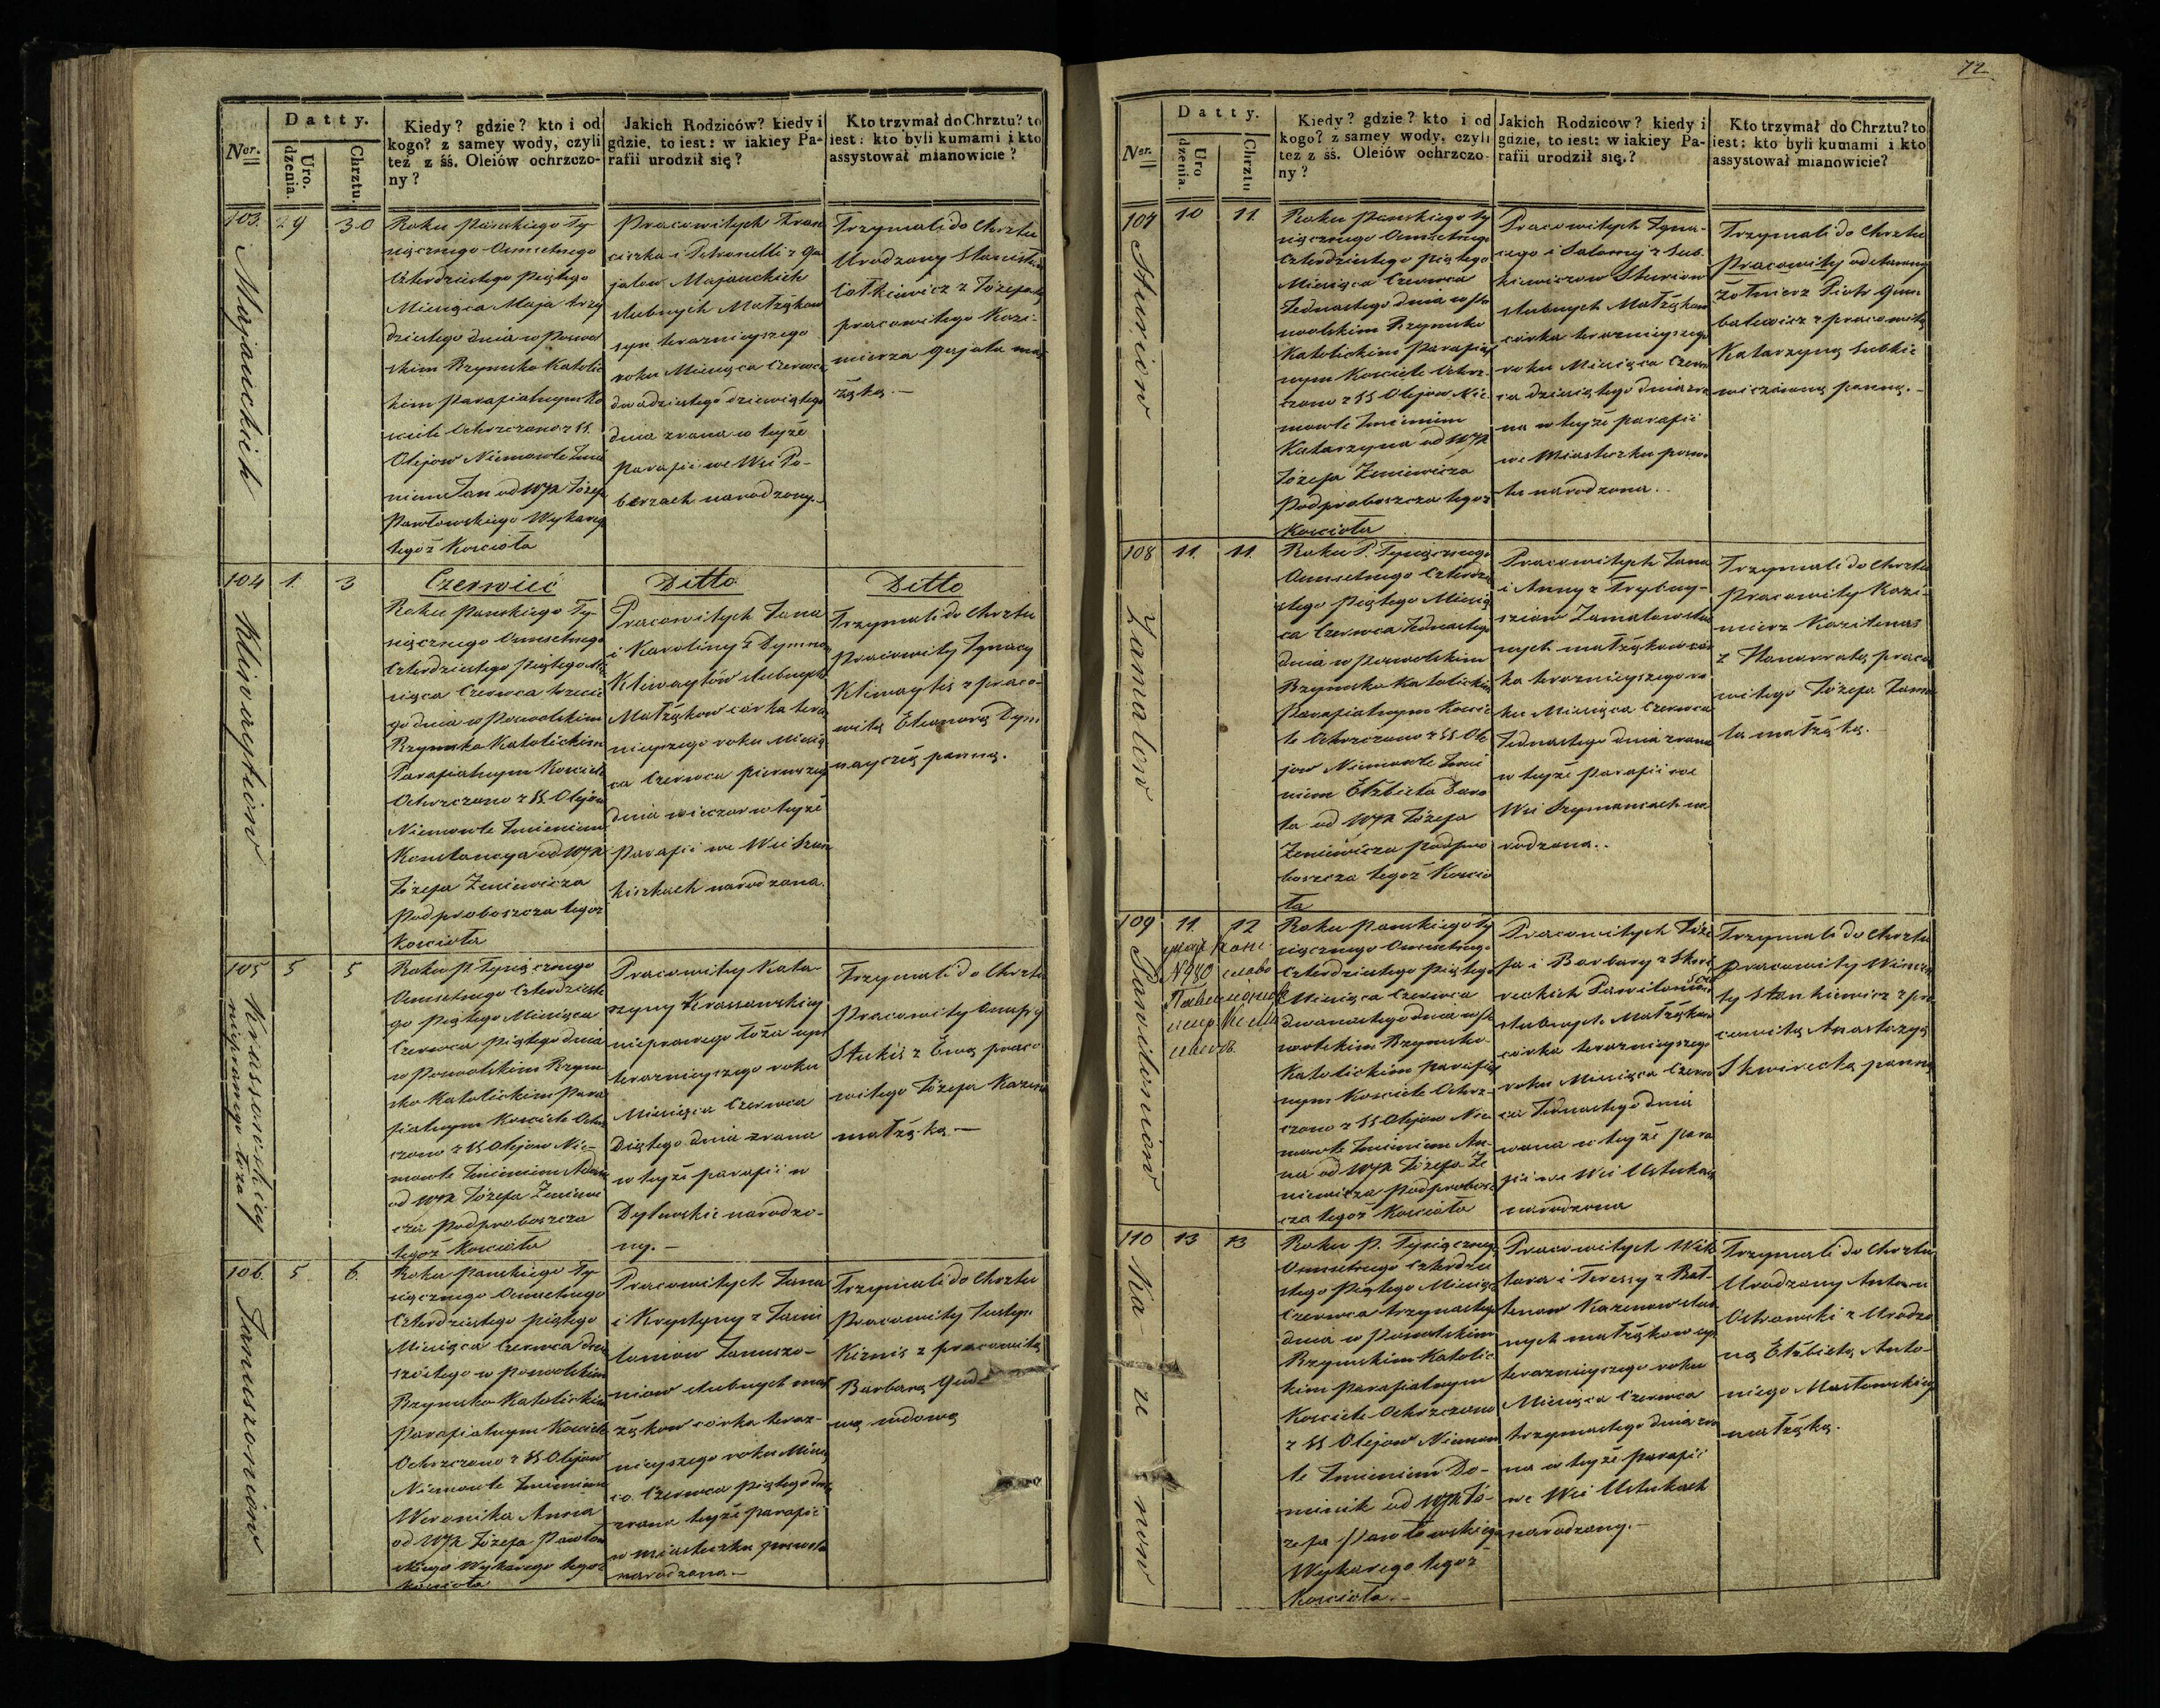 72
D a t t y.
Ner.
Uro. dzenia.
Chrztu.
Kiedy? gdzie? kto i od
kogo? z samey wody, czyli
też z śś. Oleiów ochrzczo-
ny?
Jakich Rodziców? kiedy i
gdzie, to iest: w iakiey Pa-
rafii urodził się?
Kto trzymał do Chrztu? to
iest: kto byli kumami i kto
assystował mianowicie?
103.
29
30
Majauckich
Roku Pańskiego Ty-
siącznego Osmsetnego
Czterdziestego Piątego
Miesiąca Maja trzy
dziestego dnia w Poswol
skim Rzymsko Katolic
kim Parafialnym Ko
sciele Ochrzczono z SS.
Olejow Niemowle Imie
niem Jan od WJX Józefa
Pawłowskiego Wykarego
tegoż Koscioła
Pracowitych Fran
ciszka i Petronelli z Ga
jałow Majauckich
slubnych Małżąkow
syn teraznieyszego
roku Miesiąca Czerwca
dwadziestego dziewiątego
dnia zrana w teyże
Parafii we Wsi Po-
berzach narodzony.
Trzymali do Chrztu
Urodzony Stanisław
z Józefatą
pracowitego Kazi-
mierza Gajała mał
żąką.—
104
1.
3
Kliwaytiow
Czerwiec
Roku Pańskiego Ty-
siącznego Osmsetnego
Czterdziestego Piątego Mie
siąca Czerwca trzecie
go dnia w Poswolskim
Rzymsko Katolickim
Parafialnym Kosciele
Ochrzczono z SS. Olejow
Niemowle Imieniem
Konstancya od WJX
Józefa Zeniewicza
Podproboszcza tegoż
Kosciola
Ditto
Pracowitych Jana
i Karoliny z Dymno
Kliwaytów slubnych
Małżąkow córka tera
znieyszego roku Miesią
ca Czerwca pierwszego
dnia wieczor w teyże
Parafii we Wsi
kiszkach narodzona.
Ditto
Trzymali do Chrztu
pracowity Ignacy
Kliwaytis z praco-
witą Eleonorą Dym
nayczią panną.
105
5
5
Krassowskiey
nieprawego łoża
Roku P. Tysiącznego
Osmsetnego Czterdzieste
go Piątego Miesiąca
Czerwca piątego dnia
w Poswolskim Rzym
sko Katolickim Para
fialnym Kosciele Ochrz
czono z SS Olejow Nie-
mowle Imieniem Adam
od WJX Józefa Zeniewi
cza Podproboszcza
tegoż Kosciola
Pracowitey Kata-
rzyny Krassowskiey
nieprawego łoża syn
teraznieyszego roku
Miesiąca Czerwca
Piątego dnia zrana
w teyże parafii w
narodzo-
ny.—
Trzymali do Chrztu
Pracowity Onufry
Stukis z Ewą praco
witego Józefa
małżąką.—
106.
5
6.
Januszoniow
Roku Pańskiego Ty-
siącznego Osmsetnego
Czterdziestego piątego
Miesiąca Czerwca dnia
szóstego w Poswolskim
Rzymsko Katolickim
Parafialnym Kosciele
Ochrzczono z SS Olejow
Niemowle Imieniem
Weronika Anna
od WJX Józefa Pawłow
skiego Wykarego tegoż
Kosciola
Pracowitych Jana
i Krystyny z
Januszo-
niow slubnych mał
żąkow córka teraz-
nieyszego roku Miesią
ca Czerwca piątego dnia
zrana teyże parafii
w miasteczku poswolu
narodzona.—
Trzymali do Chrztu
Pracowity Justyn
Kirnis z pracowitą
Barbarą
wą wdową
D a t t y.
Ner.
Uro dzenia.
Chrztu
Kiedy? gdzie? kto i od
kogo? z samey wody, czyli
też z śś. Oleiów ochrzczo-
ny?
Jakich Rodziców? kiedy i
gdzie, to iest: w iakiey Pa-
rafii urodził się?
Kto trzymał do Chrztu? to
iest: kto byli kumami i kto
assystował mianowicie?
104
10
11.
Sturniow
Roku Pańskiego Ty
siącznego Osmsetnego
Czterdziestego piątego
Miesiąca Czerwca
Jednastego dnia w Po
swolskim Rzymsko
Katolickim Parafial
nym Kosciele Ochrz-
czono z SS Olejow Nie-
mowle Imieniem
Katarzyna od WJX
Józefa Zeniewicza
Podproboszcza tegoż
Kosciola
Pracowitych Igna-
cego i Salomei z Sub-
kiewiczow Sturniow
slubnych Małżąkow
córka teraznieyszego
roku Miesiąca Czerw
ca dziesiątego dnia zra
na w teyże parafii
we Miasteczku poswo
lu narodzona.
Trzymali do Chrztu
Pracowity odstawny
żołnierz Piotr Gum
balewicz z pracowitą
Katarzyną Subkie
wiczówną panną.—
108
11.
11.
Zamalow
Roku P. Tysiącznego
Osmsetnego Czterdzie
stego piątego Miesią
ca Czerwca Jednastego
dnia w Poswolskim
Rzymsko Katolickim
Parafialnym Koscie
le Ochrzczono z SS Ole
jow Niemowle Imie
niem Elżbieta Doro
ta od WJX Józefa
Zeniewicza podpro
boszcza tegoż Koscio
ła
Pracowitych Jana
i Anny z Trybuy-
sziow Zamalow slub
nych małżąkow cór
ka teraznieyszego ro
ku Miesiąca Czerwca
Jednastego dnia zrana
w teyże parafii we
Wsi Szymancach na
rodzona..
Trzymali do Chrztu
Pracowity Kazi-
mierz Kazilenas
z Honorratą praco
witego Józefa Zama
la małżąką.
109
11.
12
Pawiloniow
Roku Pańskiego Ty
siącznego Osmsetnego
Czterdziestego Piątego
Miesiąca Czerwca
dwunastego dnia w Po
swolskim Rzymsko
Katolickim parafial
nym Kosciele Ochrz-
czono z SS Olejow Nie
mowle Imieniem An-
na od WJX Józefa Ze
niewicza Podprobosz
cza tegoż Kosciola
Pracowitych Józe
fa i Barbary z Skwi
reckich Pawiloniow
slubnych Małżąkow
córka teraznieyszego
roku Miesiąca Czerw
ca Jednastego dnia
zrana w teyże para
fii we Wsi Ustukach
narodzona
Trzymali do Chrztu
Pracowity Wincen
ty Stankiewicz z pra
cowitą Anastazyą
Skwirecką panną
110
13
13
Kazenow
Roku P. Tysiącznego
Osmsetnego Czterdzie
stego Piątego Miesiąca
Czerwca trzynastego
dnia w Poswolskim
Rzymskim Katolic
kim parafialnym
Kosciele Ochrzczono
z SS Olejow Niemow
le Imieniem Do-
minik od WJX Jó-
zefa Pawłowskiego
Wykarego tegoż
Kosciola.—
Pracowitych Wik
tora i Teressy z Bal-
tenow Kazenow slub
nych małżąkow syn
teraznieyszego roku
Miesiąca Czerwca
trzynastego dnia zra
na w teyże parafii
we Wsi Ustukach
narodzony.—
Trzymali do Chrztu
Urodzony Antoni
Ostrowski z Urodzo
ną Elżbietą Anto-
niego Masłowskiego
małżąką.